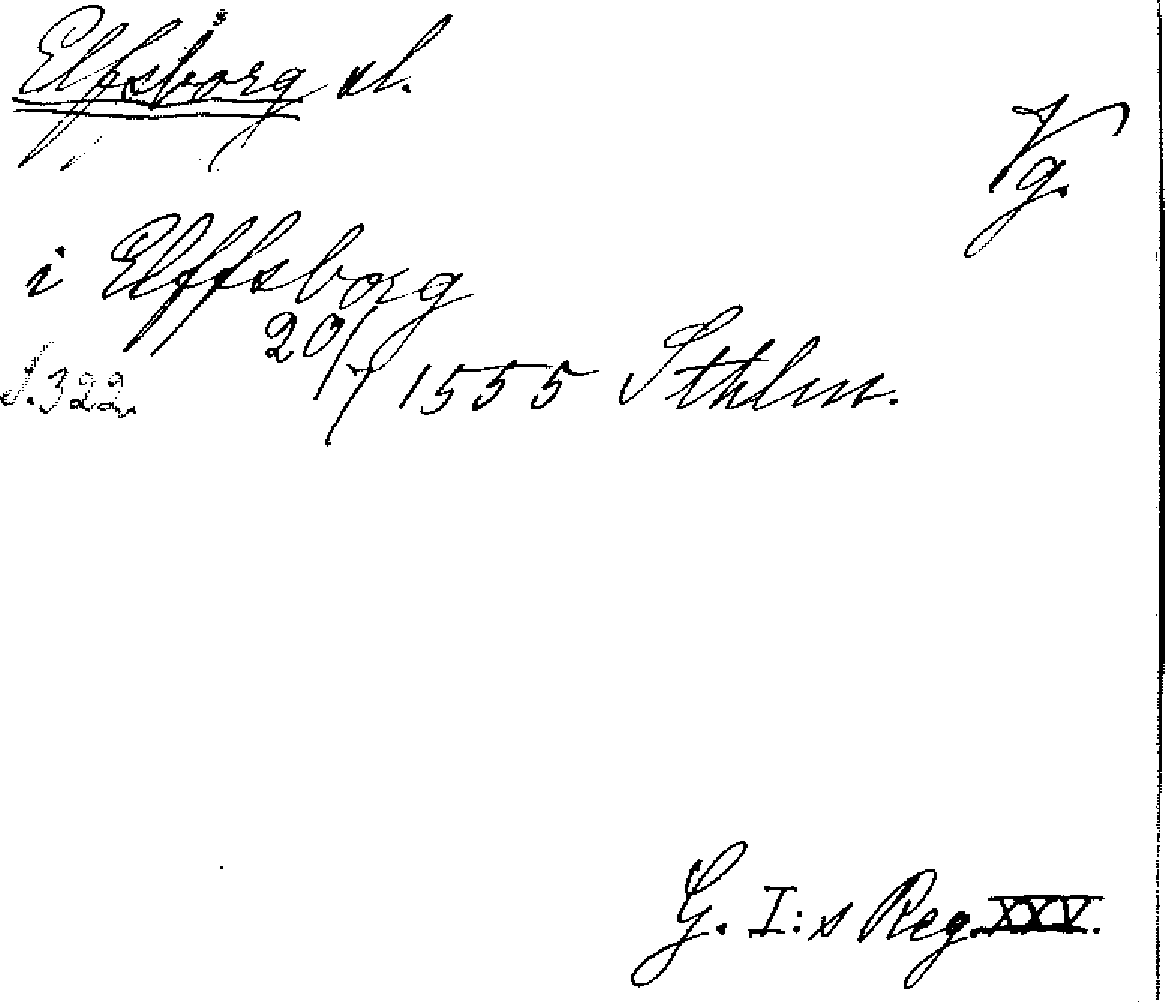 Elfsborg sl.
Vg.
i Elffsborg
S. 322. 20/7 1555 Sthlm.
G. I:s Reg. XXV.